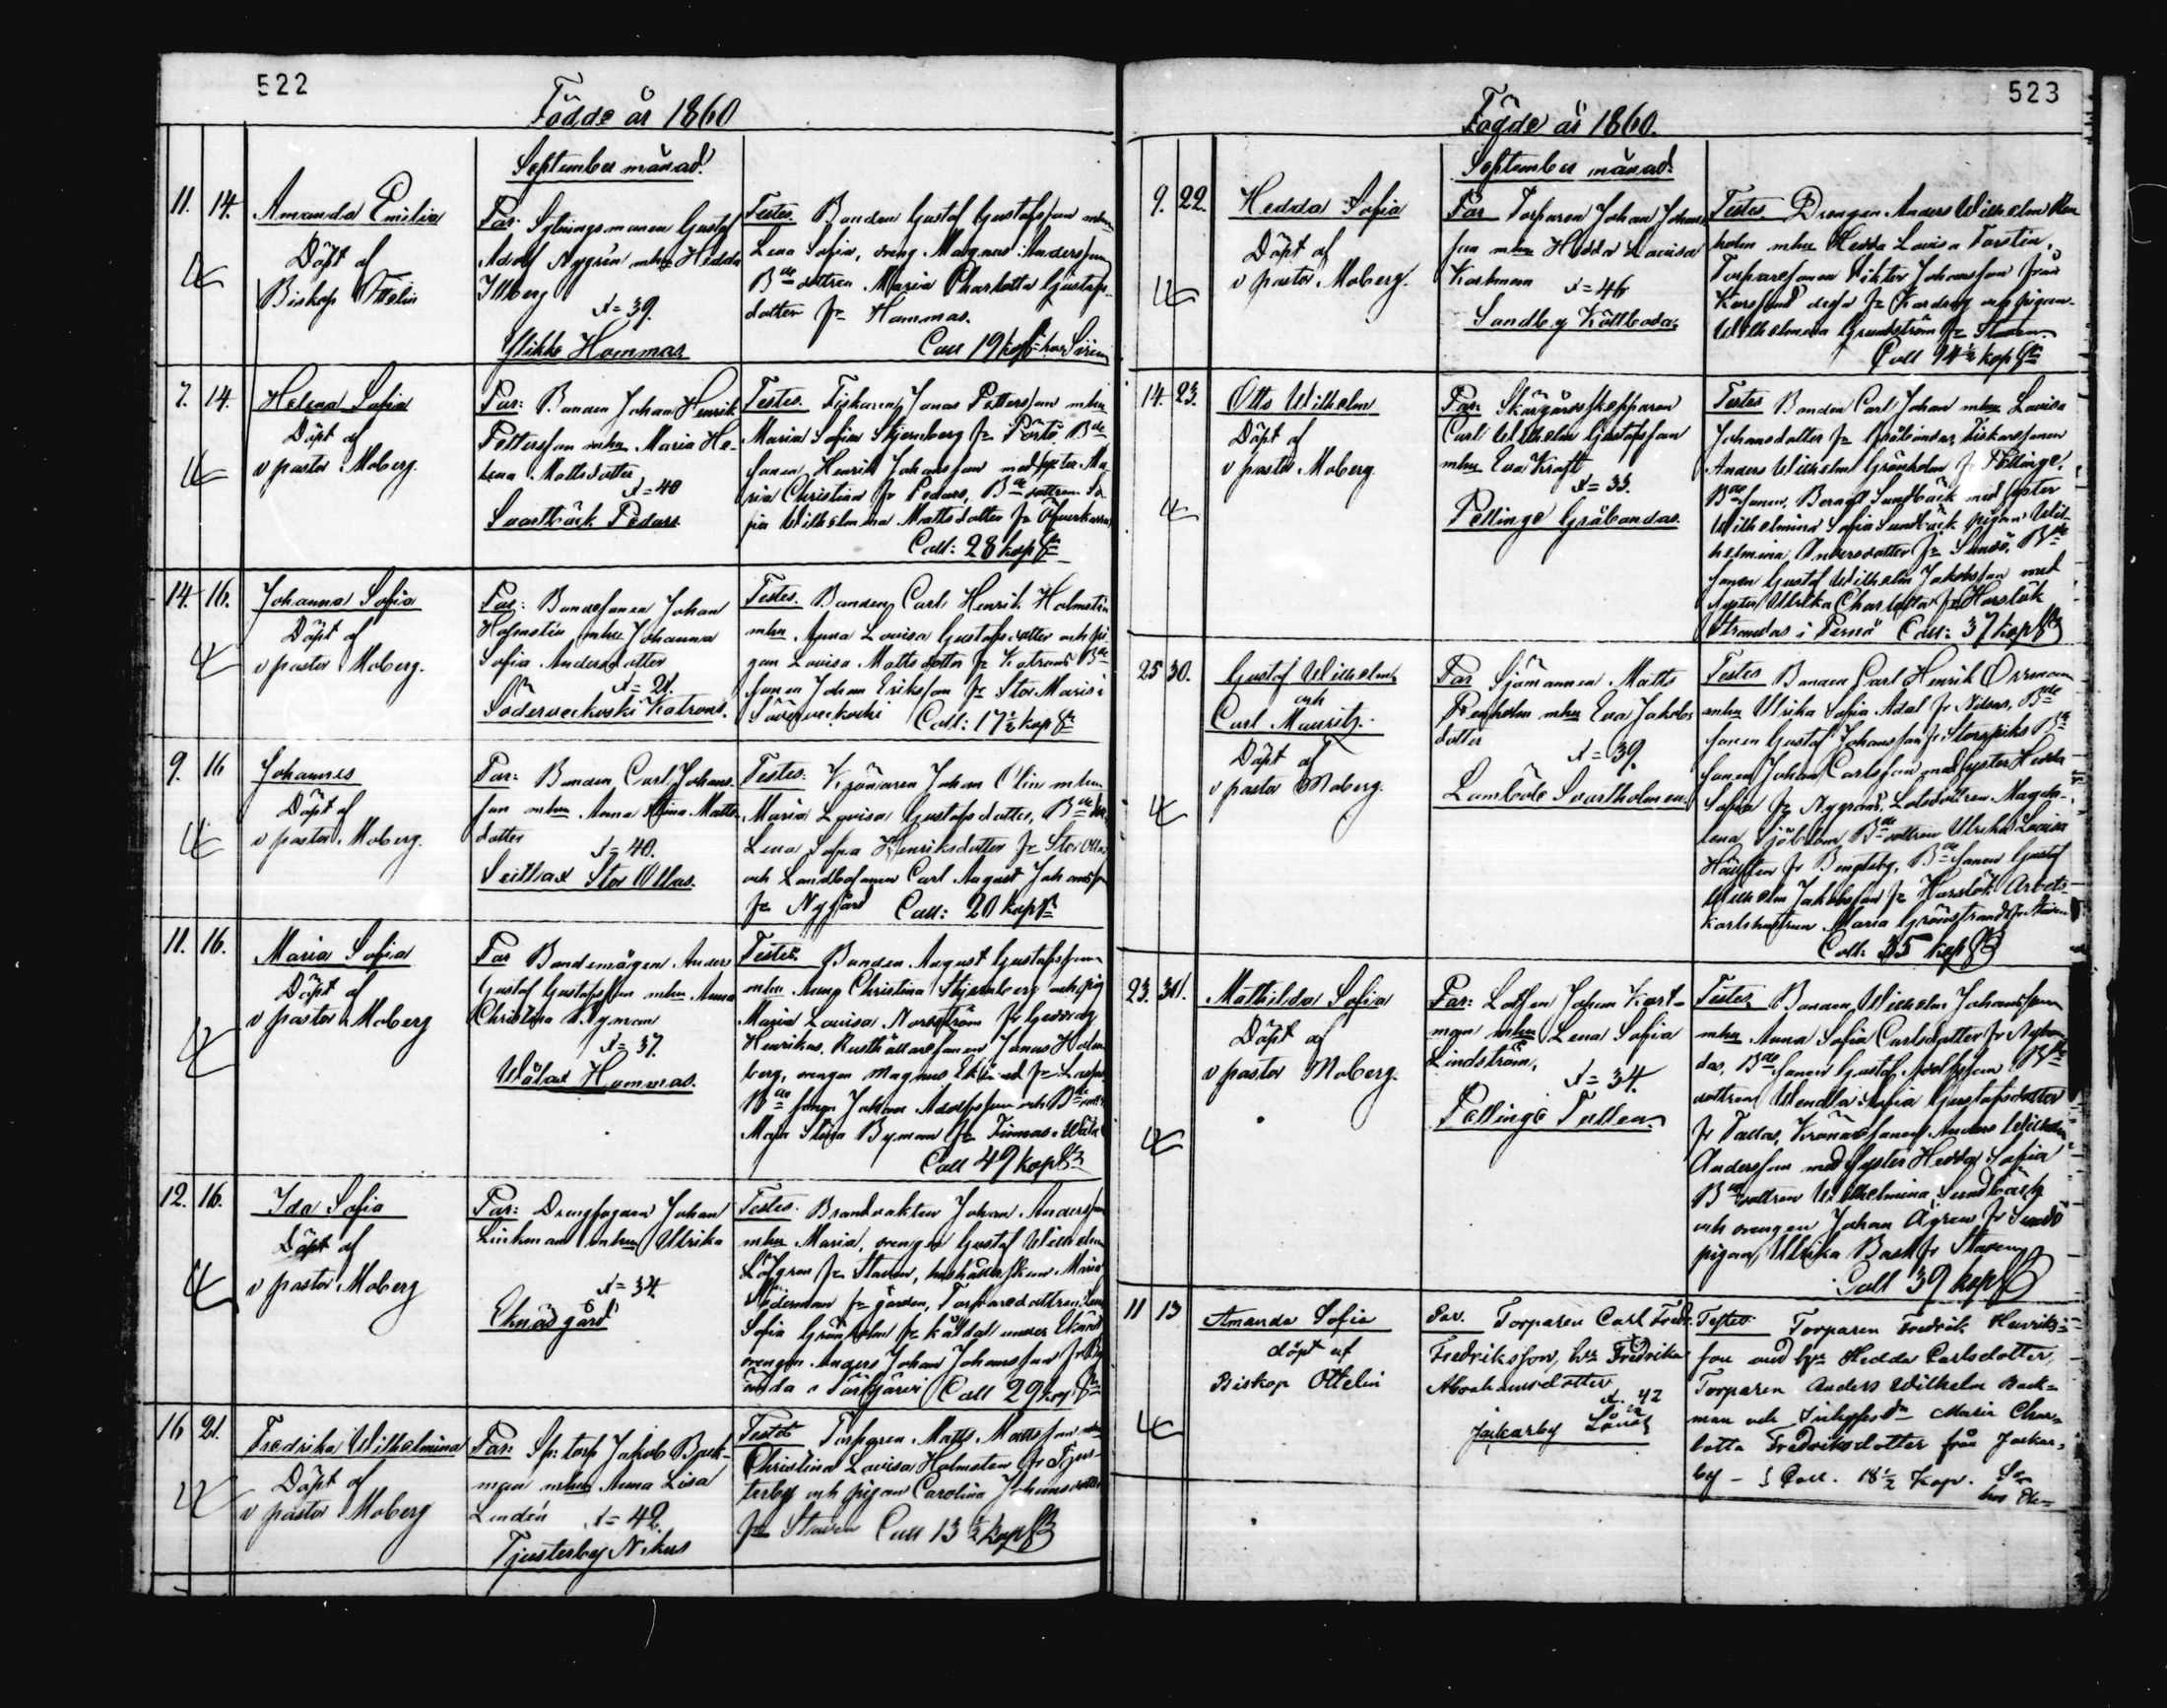 522
Födde år 1860
September månad.
11. 14. Amanda Emilia
Döpt af
Biskop Ottelin
Par: Sytningsmannen Gustaf
Adolf Nygrén mhu Hedda
Illberg
x= 39.
Hammas
Testes. Bonden Gustaf Gustafsson mhu
Lena Sofia, dreng Magnus Andersson
Bde dottren Maria Charlotta Gustafs-
dotter fr Hammas.
Coll 19 kop
7. 14. Helena Sofia
Döpt af
v pastor Moberg.
Par: Bonden Johan Henrik
Pettersson mhu Maria He-
lena Mattsdotter
x= 40
Svartbäck Pedars
Testes. Fiskaren Jonas Pettersson mhu
Maria Sofia Stjernberg fr Pörtö. Bde
sonen Henrik Johansson med syster Ma-
ria Christina fr Pedars, Bde dottren So-
fia Wilhelmina Mattsdotter fr
Coll: 28 kop
14. 16. Johanna Sofia
Döpt af
v pastor Moberg.
Par: Bondesonen Johan
Holmstén mhu Johanna
Sofia Andersdotter
x= 21.
Söderveckoski Katrens.
Testes. Bonden Carl Henrik Holmstén
mhu Anna Lovisa Gustafsdotter och pi
gan Lovisa Mattsdotter fr Katrens Bde
sonen Johan Eriksson fr Stor Maris i
Söderveckoski Coll: 17½ kop
9. 16 Johannes
Döpt af
v pastor Moberg.
Par: Bonden Carl Johans-
son mhu Anna Stina Matts-
dotter
x= 40.
Seitlax Stor Ollas.
Testes: Krönaren Johan Olin mhu
Maria Lovisa Gustafsdotter, Bde
Lena Sofia Henriksdotter fr Stor Ollas
och Landbosonen Carl August Johansson
fr Nygård Coll: 20 kop
11. 16. Maria Sofia
Döpt af
v pastor Moberg
Par Bondemågen Anders
Gustaf Gustafsson mhu Anna
Christina Nyman
x= 37.
Wålax Hammas.
Testes. Bonden August Gustafsson
mhu Anna Christina Stjernberg och pig
Maria Lovisa Norström fr Geddrag
Henrikus. Rusthållaresonen Jonas Holm
berg, drengen Magnus
Bde sonen Johan Adolfsson och Bde dottr
Maja Stina Byman fr Finnas i Wåla
Coll 49 kop
12. 16. Ida Sofia
Döpt af
v pastor Moberg
Par: Drengfogden Johan
Linkman mhu Ulrika
x= 34
Eknäs gård
Testes. Brandvakten Johan Andersson
mhu Maria, drengen Gustaf Wilhelm
Löfgren fr Staden, hushållerskan Maria
Söderman fr gården, Torparedottren Lena
Sofia Grönholm fr Källdal under Eknäs
drengen Anders Johan Johansson fr
Coll 29 kop
16 21. Fredrika Wilhelmina
Döpt af
v pastor Moberg
Par: Sp: torp Jakob Back-
man mhu Anna Lisa
Lindén x= 42.
Tjusterby Nikus
Testes Torparen Matts Mattsson mhu
Christina Lovisa Holmsten fr Tjus-
terby och pigan Carolina Johansdotter
fr Staden Coll 13½ kop
523
Födde år 1860.
September månad.
9. 22. Hedda Sofia
Döpt af
v pastor Moberg.
Par Torparen Johan Johans
son mhu Hedda Lovisa
Karlman x= 46
Sandby Köttboda.
Testes Drengen Anders Wilhelm Ren
holm mhu Hedda Lovisa Torstén.
Torparesonen Viktor Johansson från
Karsund fr Kardrag och pigan
Wilhelmina Grundström fr Staden
Coll 14½ kop
14. 23. Otto Wilhelm
Döpt af
v pastor Moberg
Par: Skärgårdsskepparen
Carl Wilhelm Gustafsson
mhu Eva Kraft
x= 33.
Pellinge Gråbondas.
Testes Bonden Carl Johan mhu Lovisa
Johansdotter fr Gråbondas, Fiskaresonen
Anders Wilhelm Grönholm fr Pellinge.
Bde sonen Berndt Sundbäck med syster
Wilhelmina Sofia Sundbäck pigan Wil-
helmina Andersdotter fr Sundö. Bde
sonen Gustaf Wilhelm Jakobsson med
syster Ulrika Charlotta fr Horslök
Strandas i Pernå Coll: 37 kop
25 30. Gustaf Wilhelm
och
Carl Mauritz.
Döpt af
v pastor Moberg.
Par Sjömannen Matts
Renholm mhu Eva Jakobs
dotter
x= 39.
Lomböle Svartholmen.
Testes Bonden Carl Henrik Orrman
mhu Ulrika Sofia Adal fr Nissas, Bde
sonen Gustaf Johansson fr Storspiks Bde
sonen Johan Carlsson med syster Hedda
Sofia fr Nygrans, Lotsdottren Magda-
lena Sjöblom Bde dottren Ulrika Lovisa
fr Bengtsby, Bde sonen Gustaf
Wilhelm Jakobsson fr Horslök Arbets-
karlshustrun Maria Grönstrand fr Staden
Coll: 35 kop
23. 30. Mathilda Sofia
Döpt af
v pastor Moberg.
Par: Lotsen Johan Karl-
man mhu Lena Sofia
Lindström.
x= 34.
Pellinge Tullen
Testes Bonden Wilhelm Johansson
mhu Anna Sofia Carlsdotter fr Nybon
das, Bde sonen Gustaf Adolfsson Bde
dottren Wendla Sofia Gustafsdotter
fr Tullas, Krönaresonen Anders Wilhelm
Andersson med syster Hedda Sofia
Bde dottren Wilhelmina Sundbäck
och drengen Johan Ågren fr Sundö
pigan Ulrika Bask fr Staden
Coll 39 kop
11 13 Amanda Sofia
döpt af
Biskop Ottelin
Par. Torparen Carl Fredr.
Fredriksson, hu Fredrika
Abrahamsdotter
x. 42
Jackarby
Testes Torparen Fredrik Henriks-
son med hu Hedda Carlsdotter,
Torparen Anders Wilhelm Back=
man och Maria Char=
lotta Fredriksdotter från Jackar=
by - Coll. 18½ Kop.